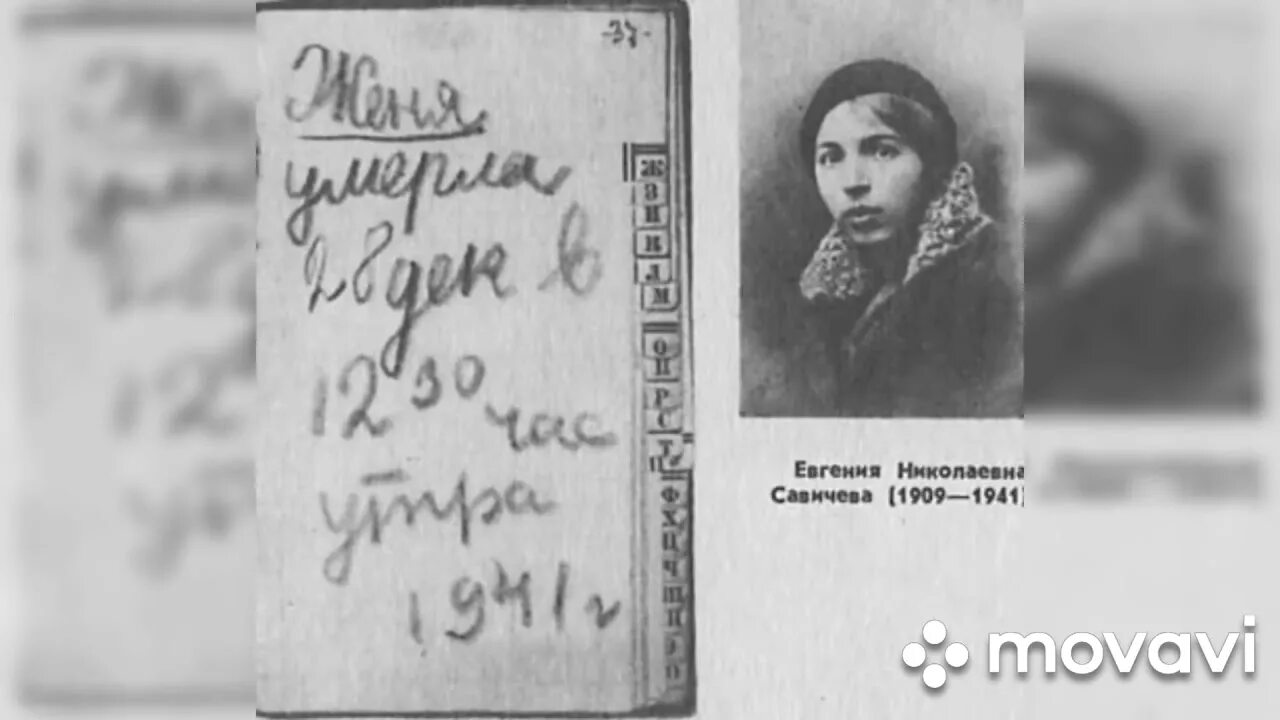 -37-
Женя
умерла
28 дек в
12 30 час
утра
1941 г
Ж
З
И
К
Л
М
О
П
Р
С
Т
Ф
Х
Ц
Ч
Евгения Николаевна
Савичева (1909—1941)
movavi